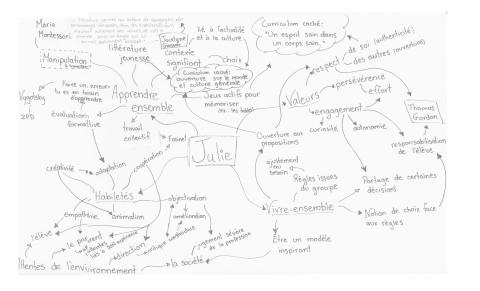 Maria
Montessori
Manipulation
littérature
jeunesse
contexte
signifiant
lié à l'actualité
et à la culture
choix
Curriculum caché:
"Un esprit sain dans
un corps sain."
Curriculum caché:
ouverture sur le monde
et culture générale
respect
de soi (authenticité)
des autres (ouverture)
persévérance
effort
Valeurs
engagement
Thomas
Gordon
Faire un erreur
tu es en train
d'apprendre
Vygotsky
ZPD
Apprendre
ensemble
Jeux actifs pour
mémoriser
évaluation
formative
travail
collectif
Freinet
Julie
Ouverture aux
propositions
curiosité
autonomie
responsabilisation
de l'élève
créativité
adaptation
coopération
ajustement
au
besoin
Règles issues
du groupe
Partage de certaines
décisions
Habiletés
objectivation
Vivre-ensemble
Notion de choix face
aux règles
empathie
animation
amélioration
l'élève
le parent
direction
critique constructive
jugement sévère
de la profession
Être un modèle
inspirant
Attentes de l'environnement
la société